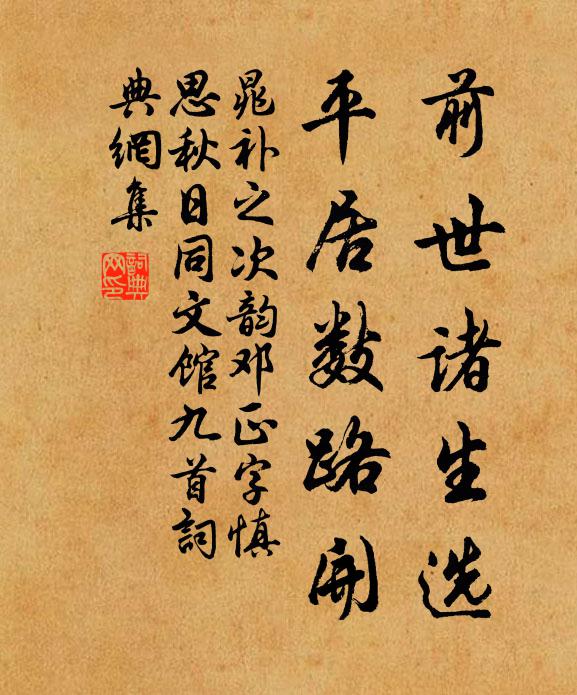 前世诸生选
平居数路开
晁补之次韵邓正字慎
思秋日同文馆九首詞
典網集
詞典網印